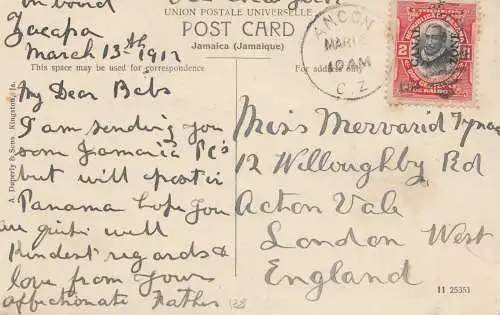 on board
Zacapa
March 13th 1912
UNION POSTALE UNIVERSELLE
POST CARD
Jamaica (Jamaique)
This space may be used for correspondence.
For address only
ANCON
MAR
10 AM
C. Z.
2
CANAL
ZONE
A. Duperly & Sons, Kingston, Ja.
My Dear Bebs
I am sending you
som Jamaica PC's
but will post in
Panama hope you
are quite well
Kindest regards &
love from your
affectionate Father
Miss Mervarid Tynan
12 Willoughby Rd
Acton Vale
London West
England
11 25353